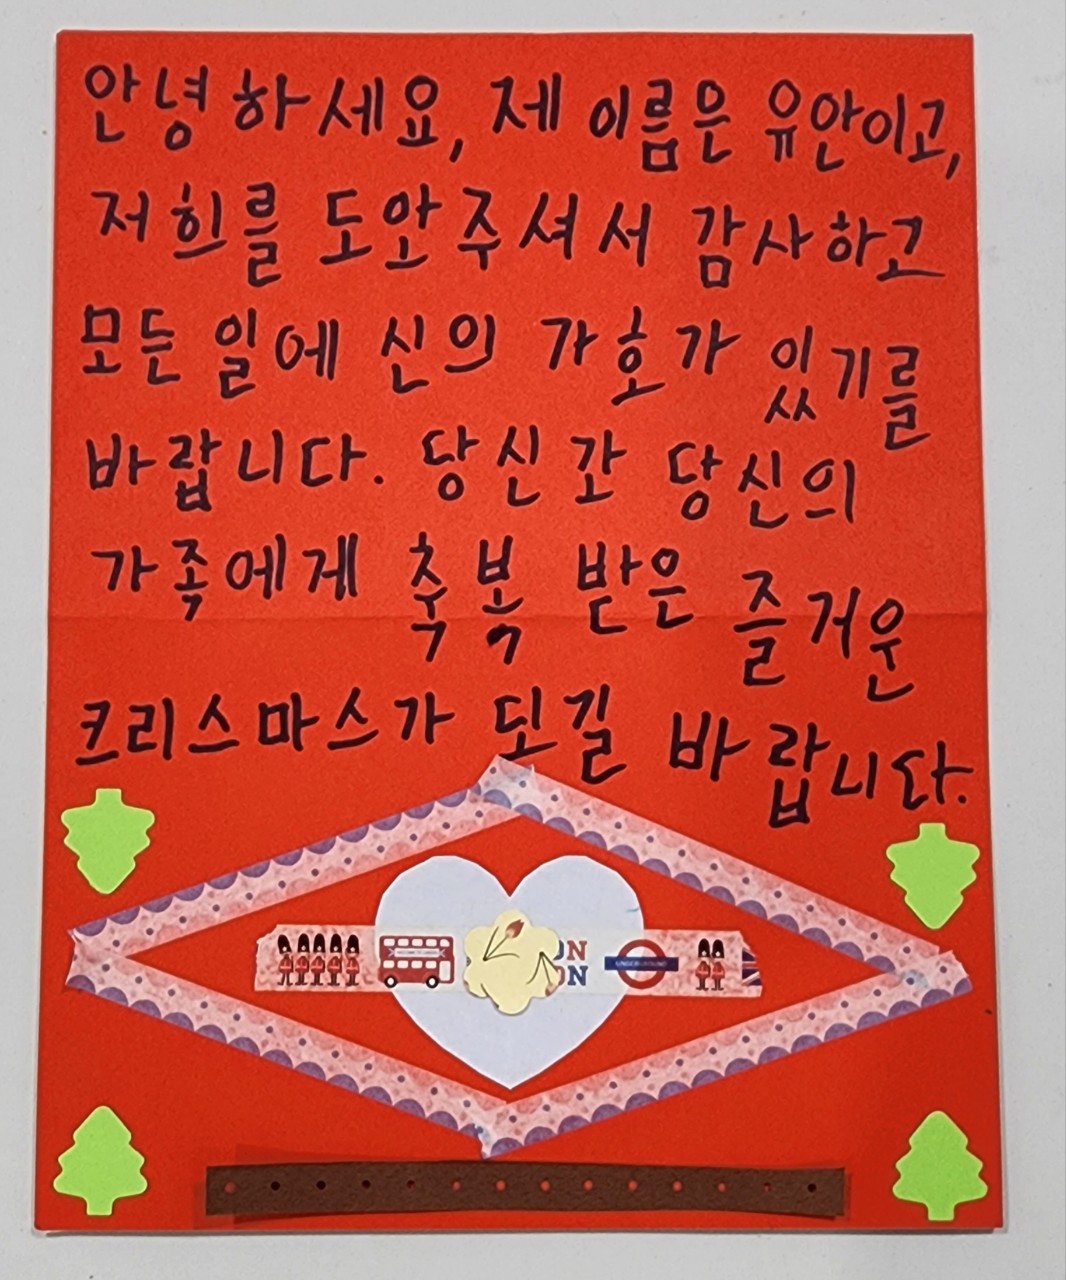 안녕하세요, 제 이름은 유안이고,
저희를 도와주셔서 감사하고
모든 일에 신의 가호가 있기를
바랍니다. 당신간 당신의
가족에게 축복 받은 즐거운
크리스마스가 되길 바랍니다.
ON
ON
UNDERGROUND